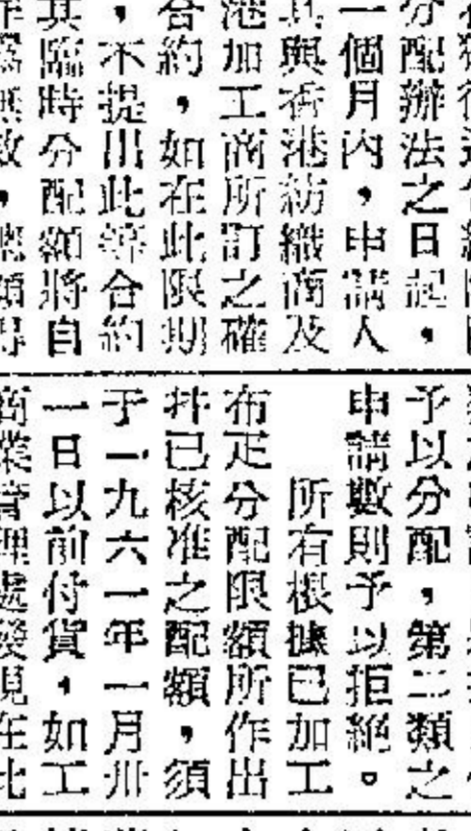 分配辦法之日起，
一個月內，申請人
其與香港紡織商及
港加工商所訂之確
合約，如在此限期
，不提出此等合約
其臨時分配額將自
予以分配，第二類之
申請數則予以拒絕。
所有根據已加工
布疋分配限額所作出
幷已核准之配額，須
于一九六一年一月卅
一日以前付貨，如工
商業管理處發現在此